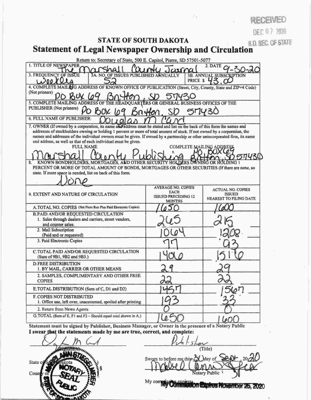 RECEIVED
DEC 07 2020
S.D. SEC. OF STATE
STATE OF SOUTH DAKOTA
Statement of Legal Newspaper Ownership and Circulation
Return to: Secretary of State, 500 E. Capitol, Pierre, SD 57501-5077
1. TITLE OF NEWSPAPER The Marshall County Journal 2. DATE 9-30-20
3. FREQUENCY OF ISSUE Weekly 3A. NO. OF ISSUES PUBLISHED ANNUALLY 52 3B. ANNUAL SUBSCRIPTION PRICE $ 43.00
4. COMPLETE MAILING ADDRESS OF KNOWN OFFICE OF PUBLICATION (Street, City, County, State and ZIP+4 Code)
(Not printers) PO Box 69 Britton, SD 57430
5. COMPLETE MAILING ADDRESS OF THE HEADQUARTERS OR GENERAL BUSINESS OFFICES OF THE
PUBLISHER (Not printer) PO Box 69 Britton, SD 57430
6. FULL NAME OF PUBLISHER: Douglas M Card
7. OWNER (If owned by a corporation, its name and address must be stated and also on the back of this form the names and
addresses of stockholders owning or holding 1 percent or more of total amount of stock. If not owned by a corporation, the
names and addresses of the individual owners must be given. If owned by a partnership or other unincorporated firm, its name
and address, as well as that of each individual must be given.
FULL NAME COMPLETE MAILING ADDRESS
Marshall County Publishing PO Box 69 Britton SD 57430
8. KNOWN BONDHOLDERS, MORTGAGES, AND OTHER SECURITY HOLDERS OWNING OR HOLDING 1
PERCENT OR MORE OF TOTAL AMOUNT OF BONDS, MORTGAGES OR OTHER SECURITIES (If there are none, so
state. If more space is needed, list on back of this form.
None
9. EXTENT AND NATURE OF CIRCULATION
AVERAGE NO. COPIES EACH ISSUE DURING PRECEDING 12 MONTHS
ACTUAL NO. COPIES ISSUED NEAREST TO FILING DATE
A. TOTAL NO. COPIES (Net Press Run Plus Paid Electronic Copies) 1650 1600
B. PAID AND/OR REQUESTED CIRCULATION
1. Sales through dealers and carriers, street vendors, and counter sales. 265 215
2. Mail Subscription (Paid and/or requested) 1064 1208
3. Paid Electronic Copies 77 93
C. TOTAL PAID AND/OR REQUESTED CIRCULATION (Sum of 9B1, 9B2 and 9B3.) 1406 1516
D. FREE DISTRIBUTION
1. BY MAIL, CARRIER OR OTHER MEANS 29 29
2. SAMPLES, COMPLIMENTARY AND OTHER FREE COPIES 22 22
E. TOTAL DISTRIBUTION (Sum of C, D1 and D2) 1457 1567
F. COPIES NOT DISTRIBUTED
1. Office use, left over, unaccounted, spoiled after printing 193 33
2. Return from News Agents 0 0
G. TOTAL (Sum of E, F1 and F2 - Should equal total shown in A.) 1650 1600
Statement must be signed by Publisher, Business Manager, or Owner in the presence of a Notary Public
I swear that the statements made by me are true, correct, and complete:
Publisher
(Title)
NOTARY
SEAL
PUBLIC
Sept 20 20
Notary Public
My Commission Expires November 26, 2020